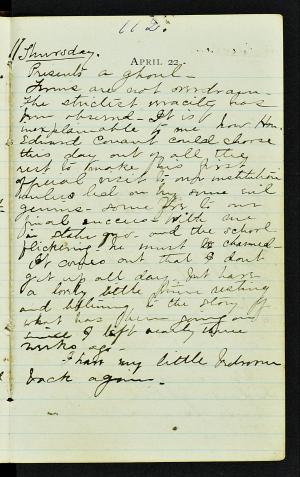 112.
Thursday.
APRIL 22
Presents a ghoul -
Forms are not overdrawn
The strictest veracity has
been observed - It is
inexplainable to me how Hon.
Edward Conant could choose
this day out of all the
rest to make his first
official visit to our institution
unless led on by some evil
genius - some foe to our
final success. With me
in and the school
flickering he must be charmed -
It comes out that I don't
get up all day, but have
a lovely little time resting
and listening to the story of
what has been going on
since I left nearly three
weeks ago.
I have my little bedroom
back again.